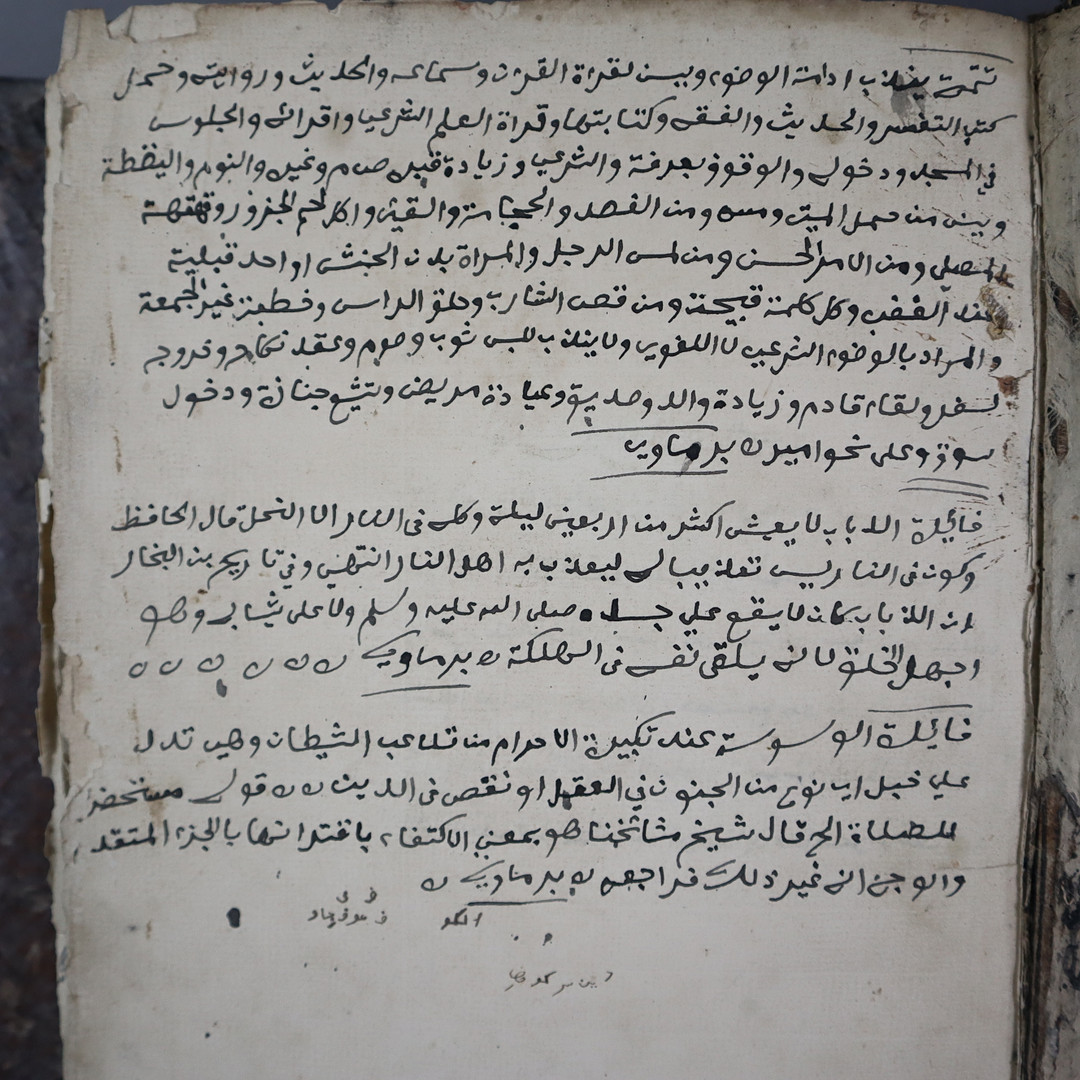 تتمة يندب ادامة الوضوء ويسن لقراة القران وسماعه والحديث وروايته وحمل
كتب التفسير والحديث والفقه وكتابتها وقراة العلم الشرعي واقرائه والجلوس
في المسجد ودخوله والوقوف بعرفة والسعي وزيادة قبره صلم وغيره والنوم واليقظة
ويسن من حمل الميت ومسه ومن الفصد والحجامة والقيئ واكل لحم الجزور وقهقهة
المصلي ومن الامرد الحسن ومن لمس الرجل والمراة بدن الخنثى او احد قبليه
عند الغضب وكل كلمة قبيحة ومن قص الشارب وحلق الراس وخطبة غير الجمعة
والمراد بالوضوء الشرعي لا اللغوي ولا يندب للبس ثوب وصوم وعقد نكاح وخروجه
لسفر ولقاء قادم وزيادة والد وصديق وعيادة مريض وتشيع جنازة ودخول
سوق وعلى نحو امير ه برماوي
فائدة الذباب لا يعيش اكثر من اربعين ليلة وكله في النار الا النحل قال الحافظ
وكونه في النار ليس تعذيبا له ليعذب به اهل النار انتهى وفي تاريخ بن النجار
ان الذباب كان لا يقع على جسده صلى الله عليه وسلم ولا على ثيابه وهو
اجهل الخلق لانه يلقى نفسه في الهلكة ه برماوي ه ه ه ه ه ه ه
فائدة الوسوسة عند تكبيرة الاحرام من تلاعب الشيطان وهي تدل
على خبل اي نوع من الجنون في العقل او نقص في الدين ه ه قوله مستحضرا
للصلاة الخ قال شيخ مشائخنا هو بمعنى الاكتفاء باقترانها بالجزء المتقدم
والوجه انه غير ذلك فراجعه ه برماوي ه